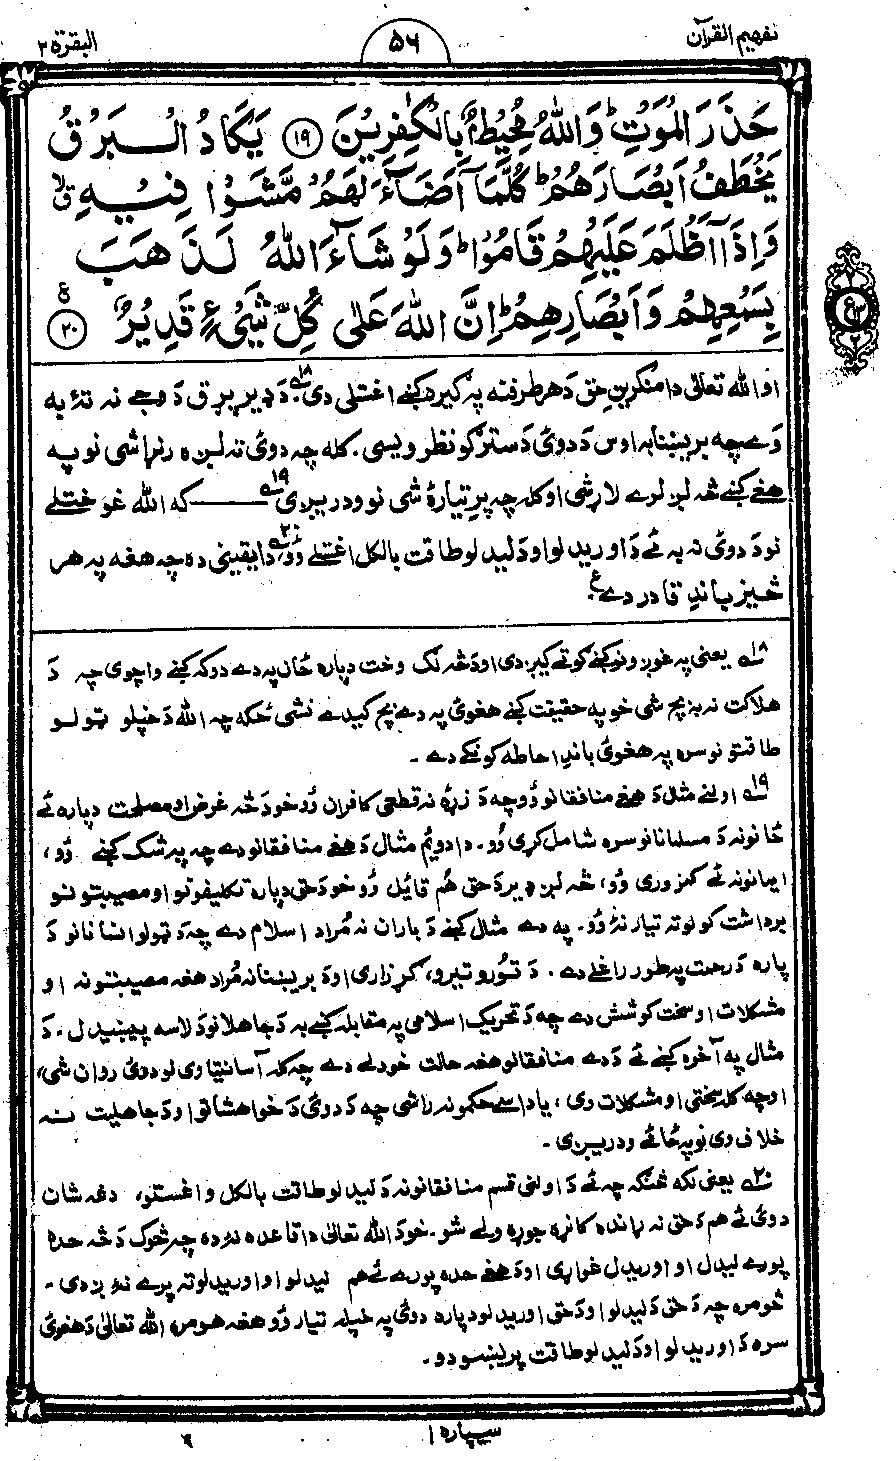 تفهیم القرآن
۵۶
البقرة ۲
حَذَرَ الْمَوْتِ ؕ وَاللّٰهُ مُحِیْطٌۢ بِالْكٰفِرِیْنَ ۱۹ یَكَادُ الْبَرْقُ
یَخْطَفُ اَبْصَارَهُمْ ؕ كُلَّمَاۤ اَضَآءَ لَهُمْ مَّشَوْا فِیْهِ ۙق
وَاِذَاۤ اَظْلَمَ عَلَیْهِمْ قَامُوْا ؕ وَلَوْ شَآءَ اللّٰهُ لَذَهَبَ
بِسَمْعِهِمْ وَاَبْصَارِهِمْ ؕ اِنَّ اللّٰهَ عَلٰى كُلِّ شَیْءٍ قَدِیْرٌ ۲۰ ع
او الله تعالیٰ دا منکرینِ حق دَ هر طرفته په گیره کښے اغستلی دی ۱۸ دَ ډیر برق دَ وجے نه نژ یه
دے چه بریښنا به اوس دَ دوئ دَ سترګو نظر ویسی. کله چه دوئ ته لږه رنړا شی نو په
هغے کښے څه لږ لرے لاړ شی او کله چه پرِ تیارۀ شی نو ودریږی ۱۹ ـــــ که الله غوښتلے
نو دَ دوئ نه به ئے دَ اوریدلو او دَ لیدلو طاقت بالکل اغستے وُو ۲۰، دا یقینی ده چه هغه په هر
څیز باندِ قادر دے ع
۱۸ یعنی په غوږونو کښے ګوتے کیږدی او دَ څه نک وخت دپاره ځان په دے دوکه کښے واچوی چه دَ
هلاکت نه به بچ شی خو په حقیقت کښے هغوئ په دے بچ کیدے نشی ځکه چه الله دَ خپلو ټولو
طاقتونو سره په هغوئ باندِ احاطه کونکے دے ۔
۱۹ اولنے مثل دَ هغے منافقانو وُو چه دَ زړۀ نه قطعی کافران وُو خو دَ څه غرض او مصلحت دپاره ئے
ځانونه دَ مسلمانانو سره شامل کړی وُو۔ دا دویٔم مثال دَ هغے منافقانو دے چه په شک کښے وُو،
ایمانونه ئے کمزوری وُو، څه لږ ډیر دَ حق هُم قائیل وُو خو دَ حق دپاره تکلیفونو او مصیبتونو
برداشت کولو ته تیار نۀ وُو۔ په دے مثال کښے دَ باران نه مُراد اسلام دے چه دَ ټولو انسانانو دَ
پاره دَ رحمت په طور راغلے دے ۔ دَ تورو تیرو، ګړزاری او دَ بریښنا نه مُراد هغه مصیبتونه او
مشکلات او سخت کوشش دے چه دَ تحریکِ اسلامی په مقابله کښے به دَ جاهلانو دَ لاسه پیښیدل۔ دَ
مثال په آخره کښے ئے دَ دے منافقانو هغه حالت خودلے دے چه کله آسانتیا وی نو دوئ روان شی،
او چه کله سختی او مشکلات وی، یا داسے حکمونه راشی چه دَ دوئ دَ خواهشاتو او دَ جاهلیت نه
خلاف وی نو په ځائے ودریږی ۔
۲۰ یعنی لکه څنګه چه ئے دَ اولنی قسم منافقانو نه دَ لیدلو طاقت بالکل واغستو، دغه شان
دوئ ئے هم دَ حق نه راندۀ کانړۀ جوړولے شو۔ خو دَ الله تعالیٰ دا قاعده نۀ ده چه څوک دَ څه حده
پورے لیدل او اوریدل غواړی او دَ هغے حده پورے ئے هم لیدلو او اوریدلو ته پرے نۀ ږدی ۔
څومره چه دَ حق دَ لیدلو او دَ حق اوریدلو دپاره دوئ په خپله تیار وُو هغه هومره الله تعالیٰ دَ هغوئ
سره دَ اوریدلو او دَ لیدلو طاقت پریښودو۔
سیپاره ۱